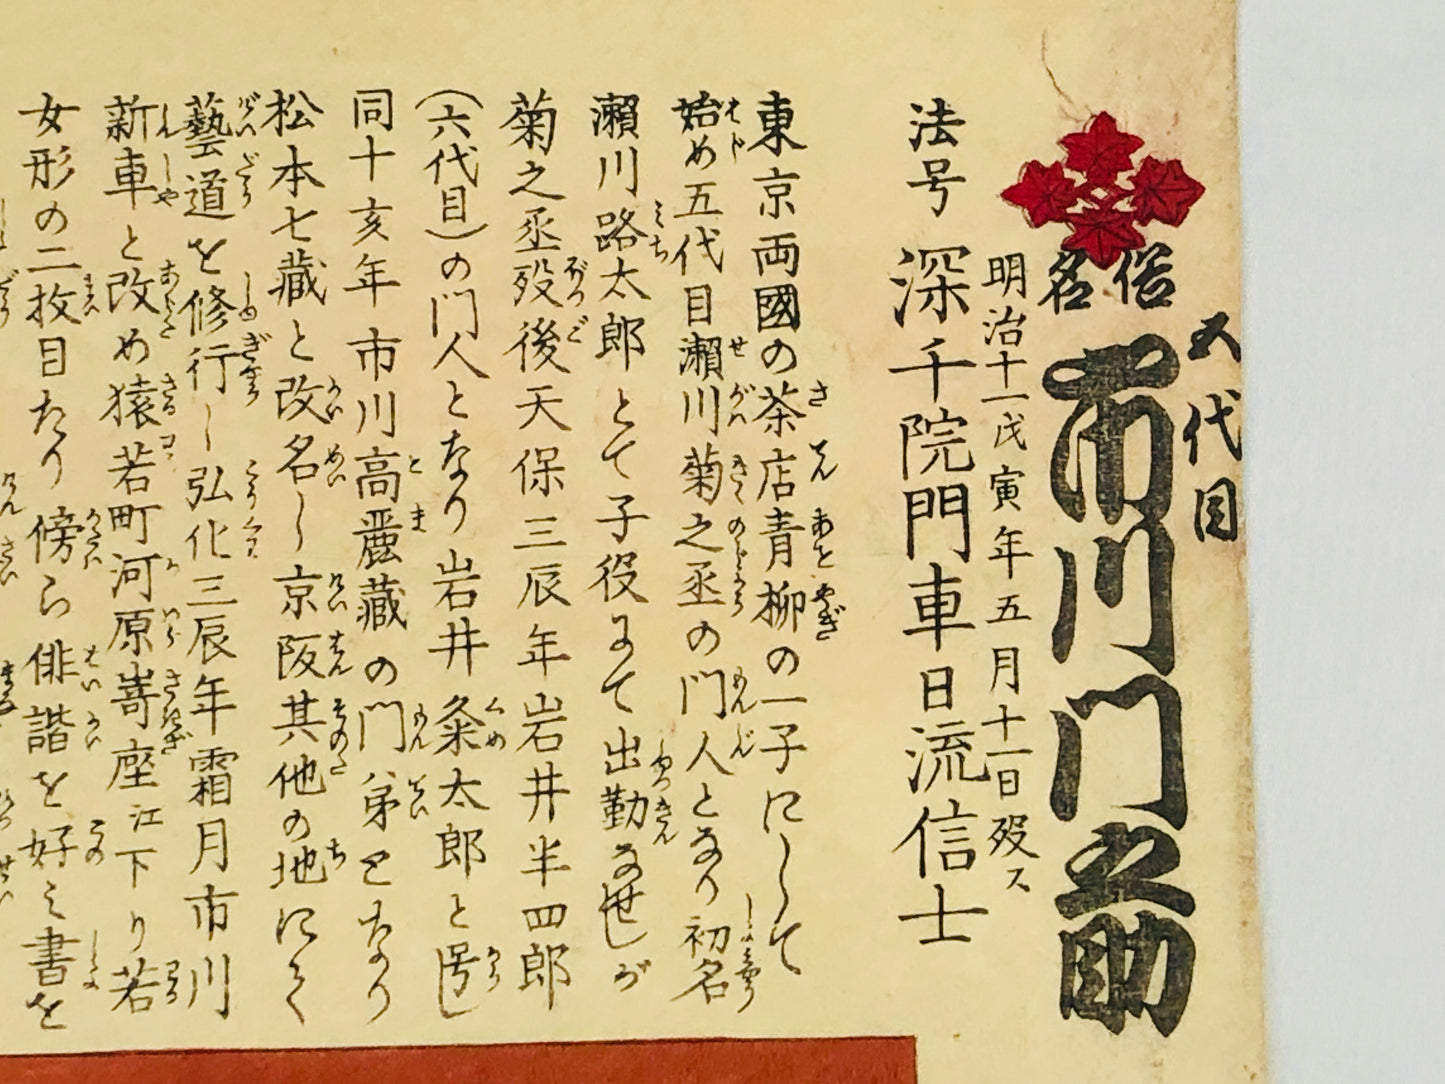 五代目
俗名
市川門之助
明治十一戊寅年五月十一日歿ス
法号 深千院門車日流信士
東京両國の茶店青柳の一子にして
始め五代目瀬川菊之丞の門人となり初名
瀬川路太郎とて子役にて出勤なせしが
菊之丞歿後天保三辰年岩井半四郎
(六代目)の門人となり岩井粂太郎と号し
同十亥年市川高麗藏の門弟となり
松本七藏と改名し京阪其他の地にて
藝道を修行し弘化三辰年霜月市川
新車と改め猿若町河原嵜座江下り若
女形の二枚目たり傍ら俳諧を好み書を